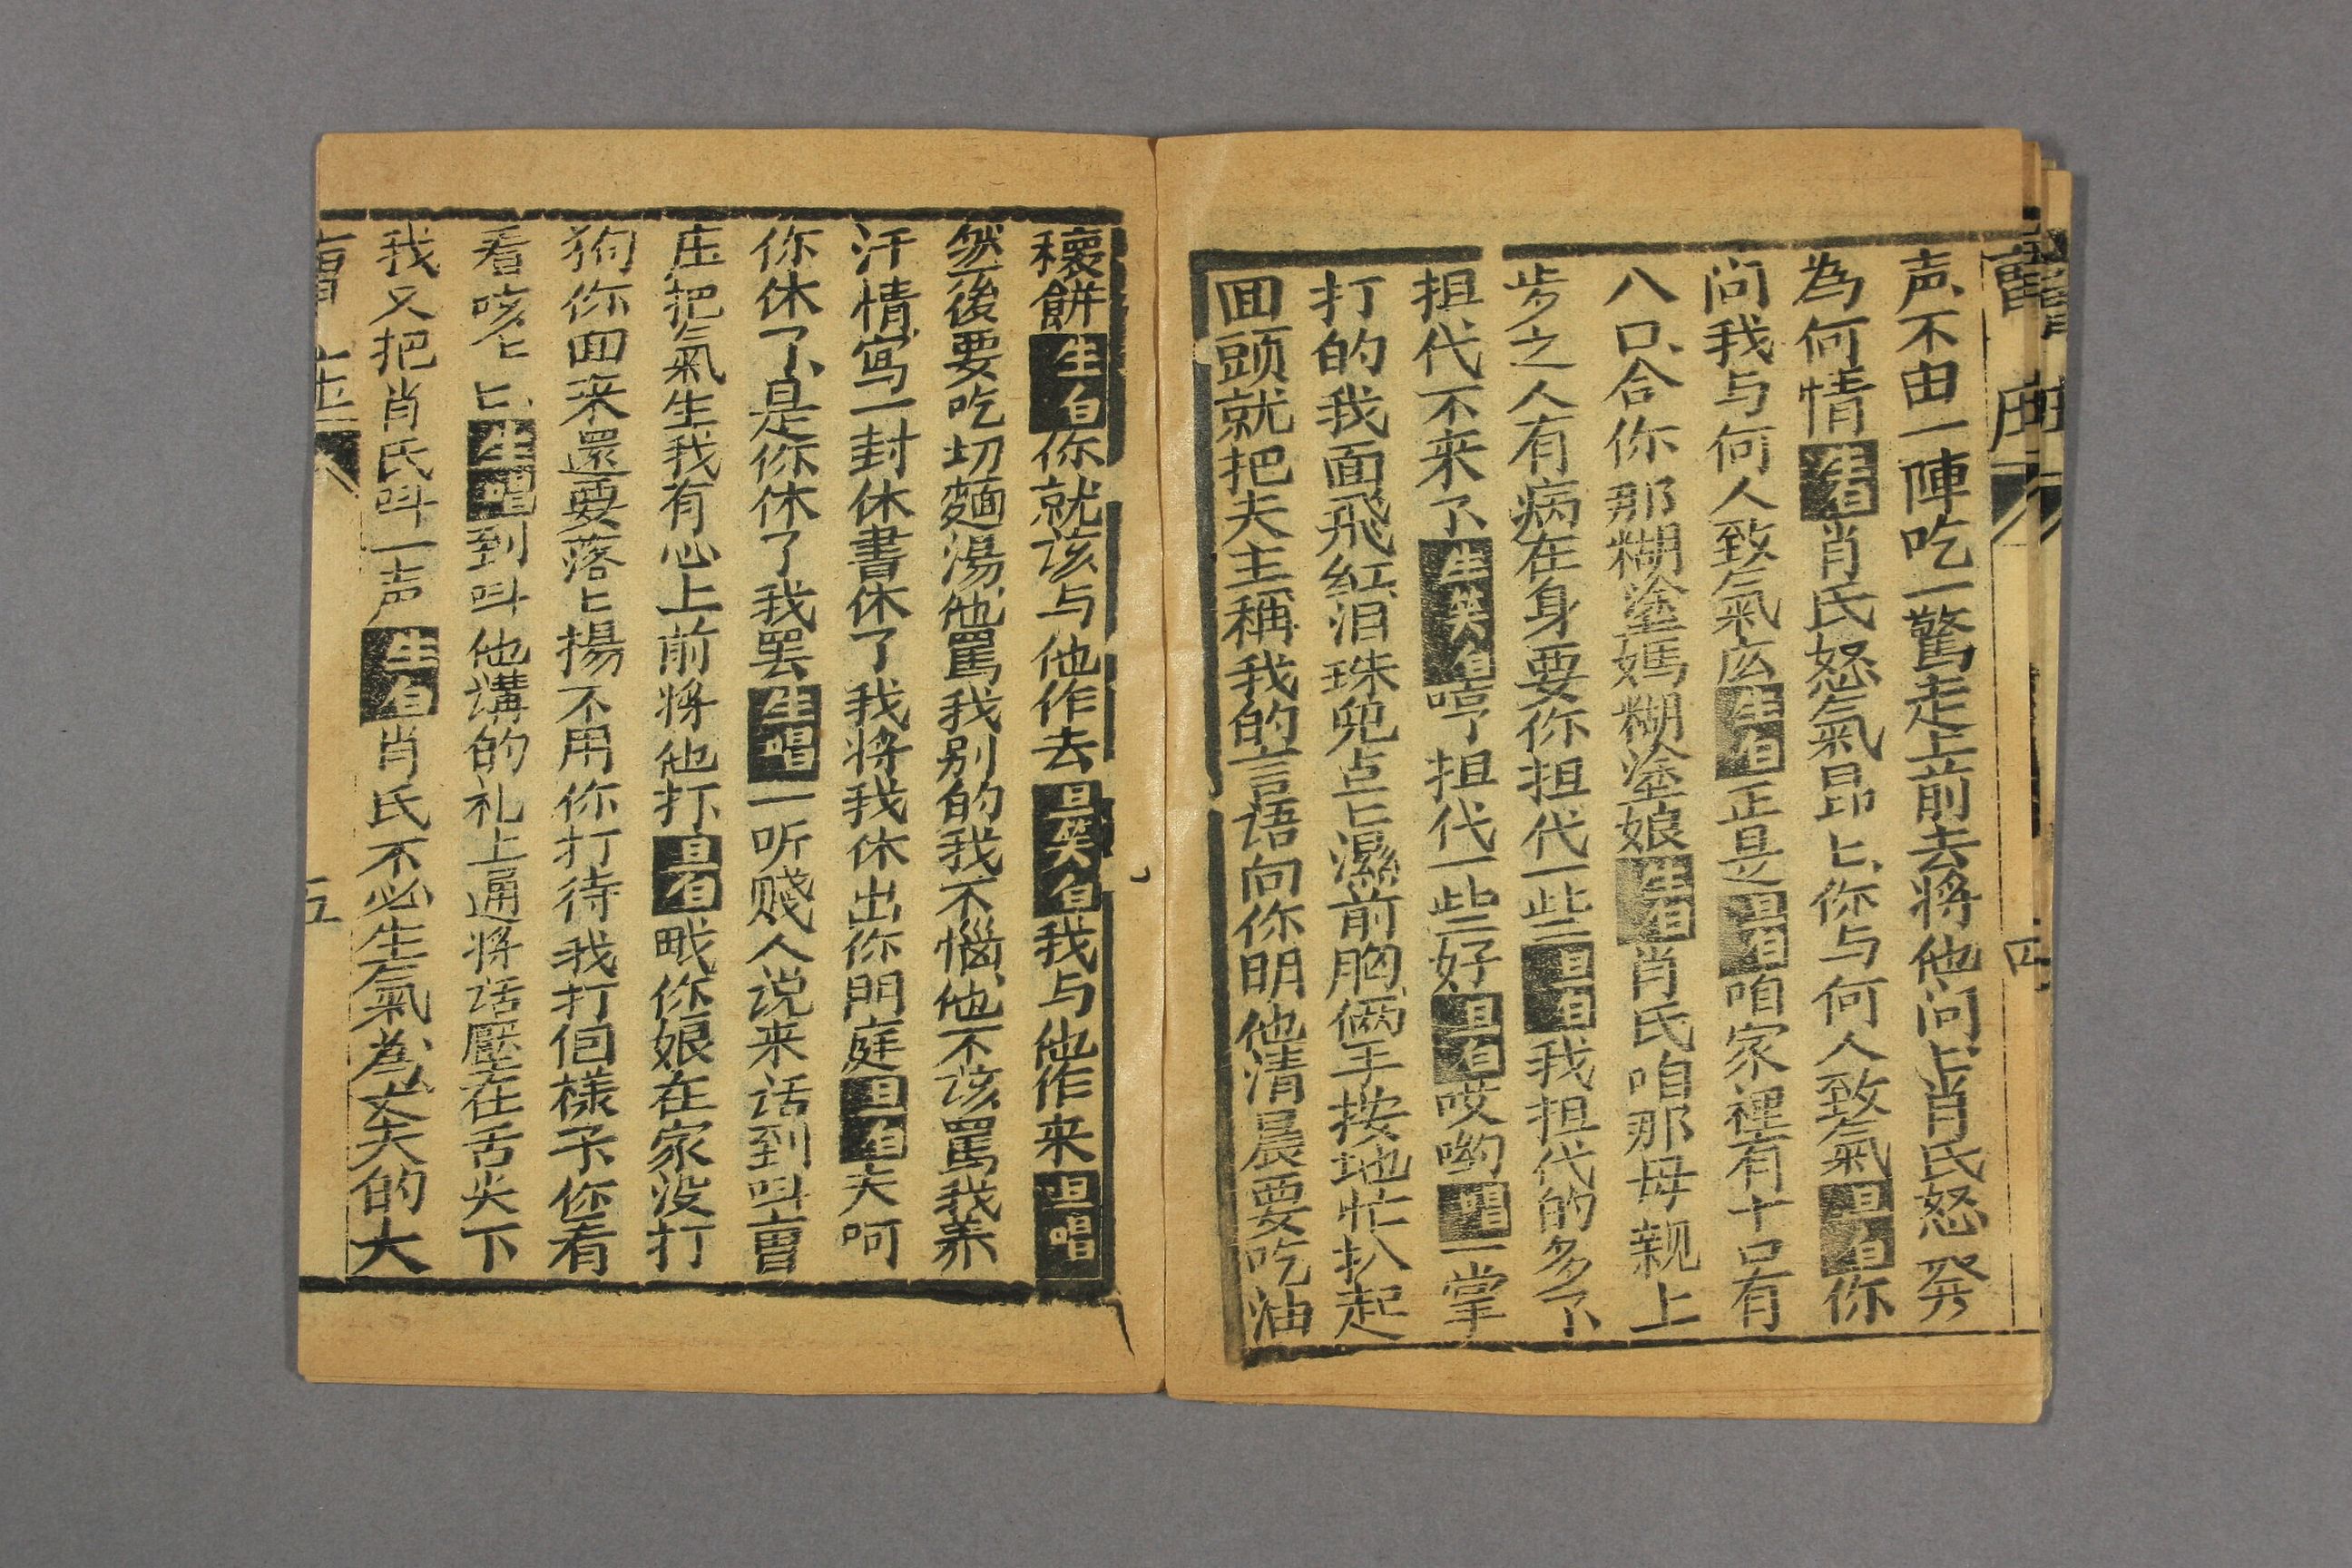 声不由一陣吃一驚走上前去将他问上肖氏怒発
為何情生白肖氏怒氣昂匕你与何人致氣旦白你
问我与何人致氣庅生白正是旦白咱家裡有十口有
八口合你那糊塗媽糊塗娘生白肖氏咱那母親上
步之人有病在身要你担代一些旦白我担代的多了
担代不来了生笑白哼担代一些好旦白哎哟唱一掌
打的我面飛紅泪珠兒点匕濕前胸俩手按地忙扒起
囬頭就把夫主稱我的言语向你明他清晨要吃油
穰餅生白你就该与他作去旦笑白我与他作来旦唱
然後要吃切麵湯他罵我别的我不惱他不该罵我养
汗情写一封休書休了我将我休出你門庭旦白夫呵
你休了是你休了我罢生唱一听贱人说来话到呌曹
庄把氣生我有心上前将他打旦白戝你娘在家没打
狗你囬来還要落上揚不用你打待我打個樣子你看
看咳匕匕生唱到呌他講的礼上通将话壓在舌尖下
我又把肖氏呌一声生白肖氏不必生氣為丈夫的大
曹庄
四
五